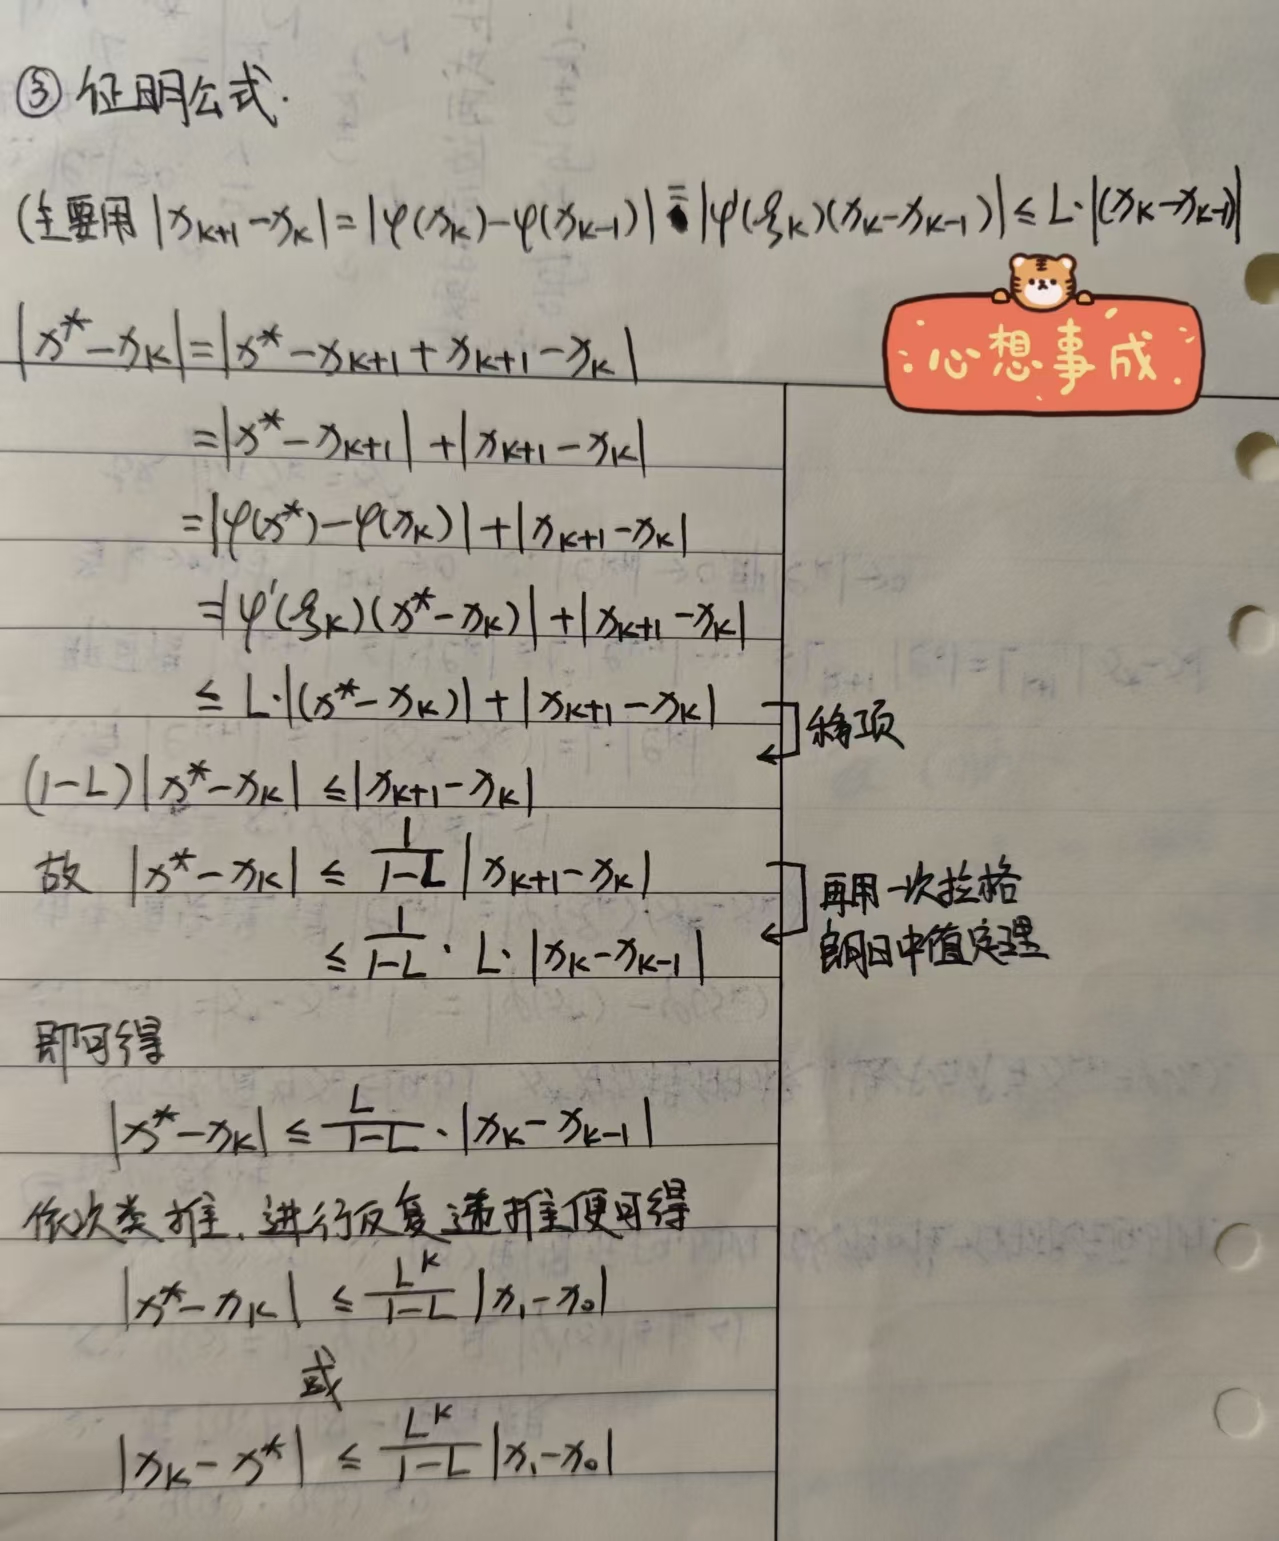 ③ 证明公式.
(主要用 |x_{k+1}-x_k|=|φ(x_k)-φ(x_{k-1})|=|φ'(ξ_k)(x_k-x_{k-1})|≤L·|(x_k-x_{k-1})|
心想事成
|x*-x_k|=|x*-x_{k+1}+x_{k+1}-x_k|
=|x*-x_{k+1}|+|x_{k+1}-x_k|
=|φ(x*)-φ(x_k)|+|x_{k+1}-x_k|
=|φ'(ξ_k)(x*-x_k)|+|x_{k+1}-x_k|
≤ L·|(x*-x_k)|+|x_{k+1}-x_k|
移项
(1-L)|x*-x_k| ≤|x_{k+1}-x_k|
故 |x*-x_k| ≤ \frac{1}{1-L}|x_{k+1}-x_k|
≤ \frac{1}{1-L}·L·|x_k-x_{k-1}|
再用一次拉格
朗日中值定理
即可得
|x*-x_k| ≤ \frac{L}{1-L}·|x_k-x_{k-1}|
依次类推、进行反复递推便可得
|x*-x_k| ≤ \frac{L^k}{1-L}|x_1-x_0|
或
|x_k-x*| ≤ \frac{L^k}{1-L}|x_1-x_0|